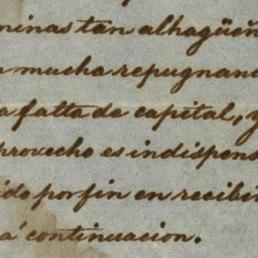 minas tan alhagüeñ
mucha repugnanc
a falta de capital, y
provecho es indispens
ido por fin en recibir
á continuacion.